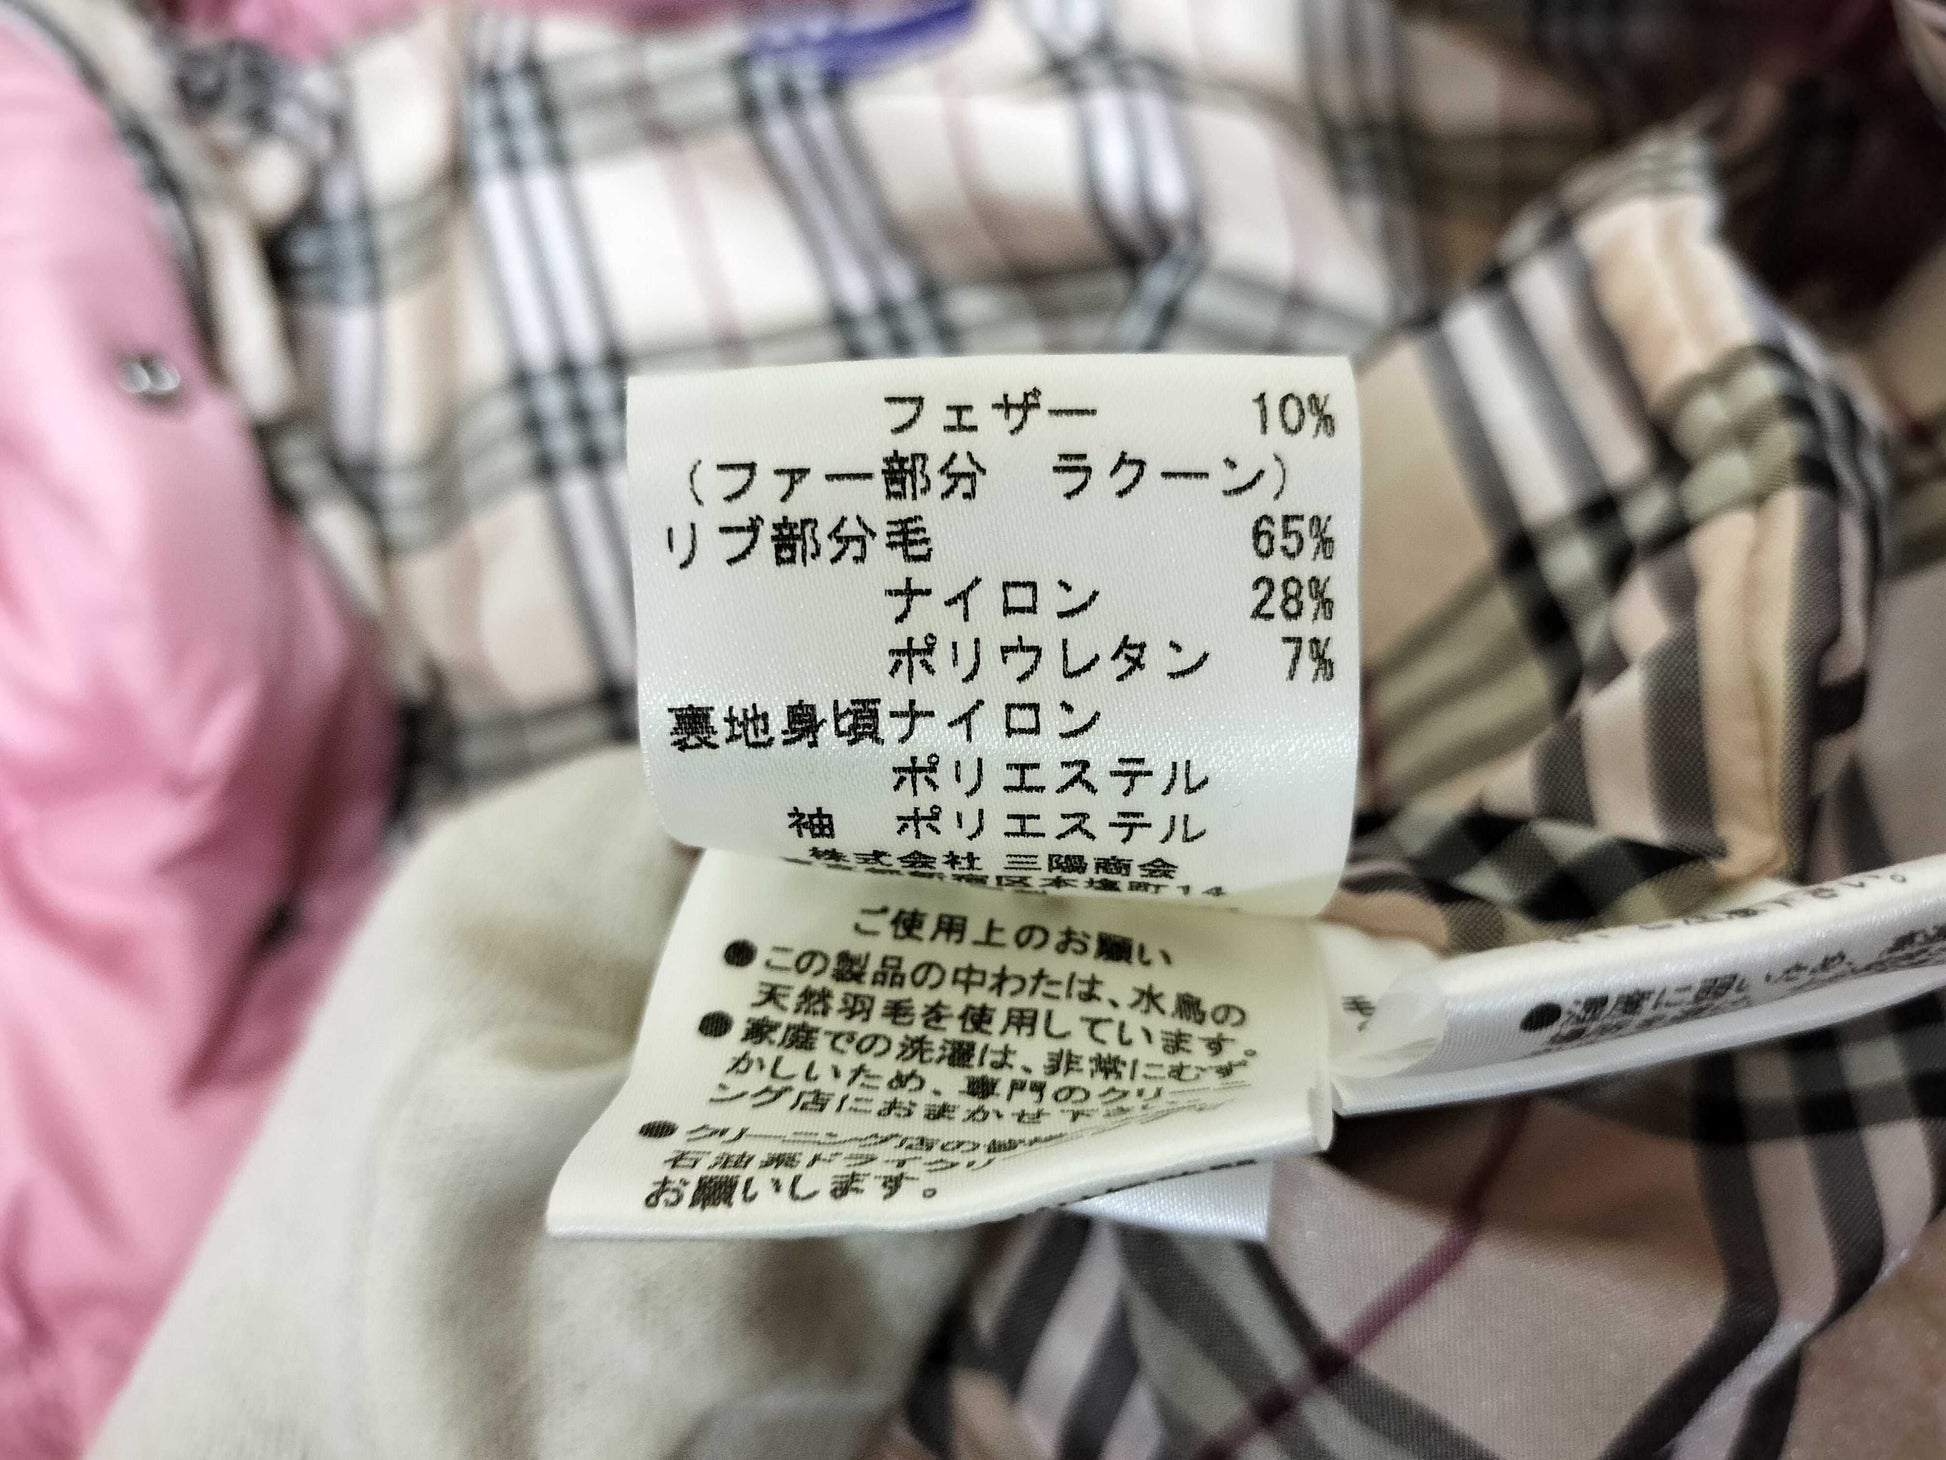 フェザー 10%
(ファー部分 ラクーン)
リブ部分毛 65%
ナイロン 28%
ポリウレタン 7%
裏地身頃ナイロン
ポリエステル
袖 ポリエステル
株式会社 三陽商会
新宿区本塩町14
ご使用上のお願い
●この製品の中わたは、水鳥の
天然羽毛を使用しています。
●家庭での洗濯は、非常にむず
かしいため、専門のクリー
ング店におまかせ下さい
●クリーニング店の皆
石油系ドライクリ
お願いします。